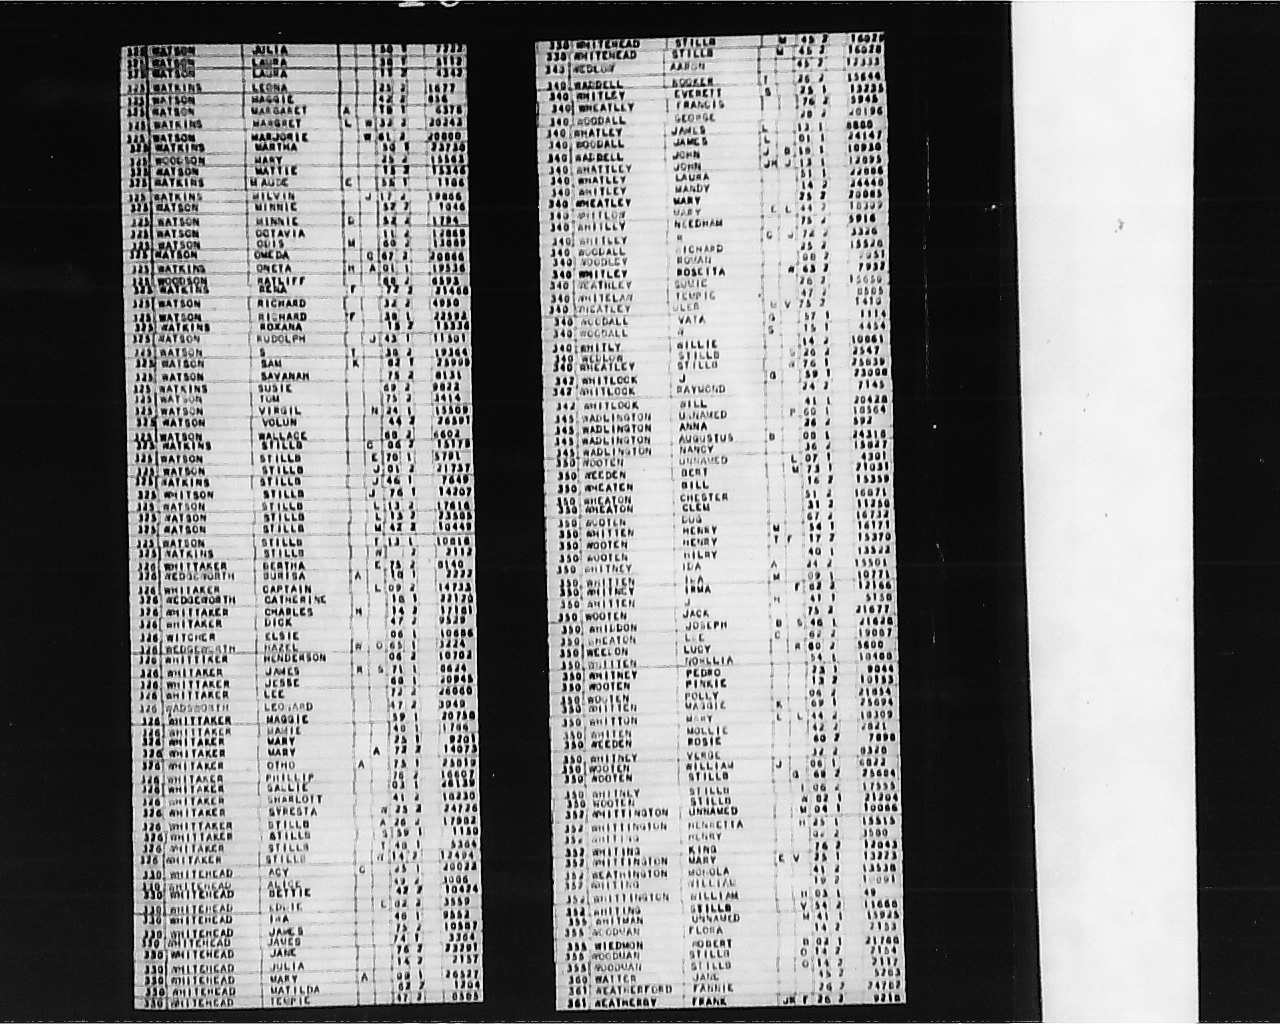 325 WATSON JULIA 7222
325 WATSON LAURA
325 WATSON LAURA 11 2 4342
325 WATKINS LEONA 25 2 1677
325 WATSON MAGGIE 42 2
325 WATSON MARGARET A 6378
325 WATKINS MARGRET L W 32 2 20343
325 WATSON MARJORIE W 61 2 20000
325 WATKINS MARTHA 50 1 23730
325 WOODSON MARY 25 2 15563
325 WATSON MATTIE 15 2 15346
325 WATKINS MAUDE E 55 1 1106
325 WATKINS MILVIN J 17 2 19806
325 WATSON MINNIE 52 2 1046
325 WATSON MINNIE D 52 2 1794
325 WATSON OCTAVIA 11 2 2869
325 WATSON ODIS M 60 2 13009
325 WATSON OMEDA G 67 2 20066
325 WATKINS ONETA H A 01 1 19536
325 WOODSON RATLIFF 6595
325 WATKINS RENA F 72 2 21466
325 WATSON RICHARD 32 2 4950
325 WATSON RICHARD F 30 1 22592
325 WATKINS ROXANA 15 2 15336
325 WATSON RUDOLPH J 43 1 11501
325 WATSON S T 30 2 19364
325 WATSON SAM K 02 1 25909
325 WATSON SAVANAH 75 2 8131
325 WATKINS SUSIE 69 2 9822
325 WATSON TOM 75 2 3414
325 WATSON VIRGIL N 24 1 15509
325 WATSON VOLUN 44 2 26591
325 WATSON WALLACE 60 2 6602
325 WATKINS STILLB G 06 2 15178
325 WATSON STILLB E 70 1 5791
325 WATSON STILLB J 01 2 21737
325 WATKINS STILLB J 46 1 7649
325 WHITSON STILLB J 76 1 14207
325 WATSON STILLB L 13 2 17616
325 WATSON STILLB L 15 2 23505
325 WATSON STILLB M 42 2 10449
325 WATSON STILLB T 13 1 10818
325 WATKINS STILLB W 2 2112
326 WHITTAKER BERTHA E 75 2 8140
326 WEDGEWORTH BURISA A 10 1 2222
326 WHITAKER CAPTAIN L 09 2 14733
326 WEDGEWORTH CATHERINE 10 1 22170
326 WHITTAKER CHARLES H 14 2 27181
326 WHITAKER DICK 47 2 9529
326 WITCHER ELSIE 06 1 10686
326 WEDGEWORTH HAZEL W O 65 1 3224
326 WHITTIKER HENDERSON 06 2 10702
326 WHITTAKER JAMES R S 71 1 0624
326 WHITTAKER JESSE 60 20945
326 WHITTAKER LEE 72 2 26060
326 WADSWORTH LEONARD 47 2 3940
326 WHITTAKER MAGGIE 59 1 20758
326 WHITTAKER MAMIE 40 1 1786
326 WHITAKER MARY 25 1 9201
326 WHITAKER MARY A 72 2 14073
326 WHITAKER OTHO A 75 1 25019
326 WHITTAKER PHILLIP 76 2 16607
326 WHITAKER SALLIE 03 1 26139
326 WHITAKER SHARLOTT 41 2 10230
326 WHITAKER SYRESTA W 25 2 24726
326 WHITTAKER STILLB A 26 2 17902
326 WHITTAKER STILLB S 59 1 1150
326 WHITTAKER STILLB T 40 1 5364
326 WHITAKER STILLB W 14 2 12494
330 WHITEHEAD ACY C 25 1 20023
330 WHITEHEAD ALICE 49 2 3006
330 WHITEHEAD BETTIE 42 2 10424
330 WHITEHEAD EDDIE L 02 2 3550
330 WHITEHEAD IRA 40 1 9552
330 WHITEHEAD JAMES 75 2 10587
330 WHITEHEAD JAMES 74 1 3304
330 WHITEHEAD JANE 76 2 22201
330 WHITEHEAD JULIA 14 2 2157
330 WHITEHEAD MARY A 09 1 26527
330 WHITEHEAD MATILDA 62 2 1204
330 WHITEHEAD TEMPIE 47 2 8585
330 WHITEHEAD STILLB M 45 2 16021
330 WHITEHEAD STILLB M 45 2 16028
343 WEDLOW AARON 65 2 17333
340 WADDELL BOOKER T 26 2 15644
340 WHITLEY EVERETT S 25 1 13235
340 WHEATLEY FRANCIS 76 2 5945
340 WOODALL GEORGE 20 2 20196
340 WHATLEY JAMES L 13 1 8800
340 WOODALL JAMES L 01 1 4147
340 WADDELL JOHN J B 10 1 10930
340 WHATTLEY JOHN JR J 13 1 12695
340 WHATLEY LAURA 51 1 22886
340 WHITLEY MANDY 14 2 24440
340 WHEATLEY MARY 25 2 20085
340 WHITLOW MARY E L 44 2 10309
340 WHITLEY NEEDHAM 75 2 5916
340 WHITLEY R C J 72 2 3326
340 WOODALL RICHARD 25 2 15526
340 WOODLEY ROMAN 00 2
340 WHITLEY ROSETTA R 65 2 7937
340 WEATHLEY SUSIE 26 2 15650
340 WHITELAW TEMPIE 47 2 8585
340 WHEATLEY ULER M V 75 2 1410
340 WOODALL VATA G 57 1 1114
340 WOODALL W S 15 1 4454
340 WHITLY WILLIE 14 2 10061
340 WEDLOW STILLB G 26 2 2547
340 WHEATLEY STILLB W 76 1 25639
342 WHITLOCK J G 59 1 23008
342 WHITLOCK RAYMOND 24 2 7145
342 WHITLOCK BILL 41 1 20428
345 WADLINGTON UNNAMED P 60 1 10564
345 WADLINGTON ANNA 26 2 592
345 WADLINGTON AUGUSTUS B 00 1 24316
345 WADLINGTON NANCY 36 2 15027
350 WOOTEN UNNAMED L 07 1 1301
350 WEEDEN BERT M 73 1 21031
350 WHEATEN BILL 16 2 15359
350 WHEATON CHESTER 51 2 16071
350 WHEATON CLEM 31 2 11250
350 WOOTEN DUG 67 1 16735
350 WHITTEN HENRY M 54 1 16171
350 WOOTEN HENRY T F 17 2 15370
350 WOOTEN HILRY 40 1 13522
350 WHITNEY IDA A 24 2 15501
350 WHITTEN IRA M 09 1 10771
350 WHITNEY IRMA F 02 2 12166
350 WHITTEN J H 41 1 5156
350 WOOTEN JACK 75 2 21677
350 WHIDDON JOSEPH B S 46 1 21628
350 WHEATON LEE C 62 2 19007
350 WEEDON LUCY R 60 2 5600
350 WHITTEN NORLLIA 54 1 10400
350 WHITNEY PEDRO 23 1 9044
350 WOOTEN PINKIE 13 2 10153
350 WOOTEN POLLY 06 2 21854
350 WHITTEN MAGGIE K 69 1 25694
350 WHITTON MARY L L 44 2 10309
350 WHITEN MOLLIE 42 2 2821
350 WEEDEN ROSIE 60 2 7898
350 WHITNEY VERGE 32 2 8320
350 WOOTEN WILLIAM J 06 1 6822
350 WOOTEN STILLB G 68 2 25604
350 WHITNEY STILLB I 06 2 17555
350 WOOTEN STILLB R 02 1 21204
352 WHITTINGTON UNNAMED M 04 1 10086
352 WHITTINGTON HENRIETTA H 25 1 15515
352 WHITING HENRY 02 2 3500
352 WHITING KING 76 2 12043
352 WHITTINGTON MARY E V 25 1 13223
352 WEATHINGTON MOHOLA 41 2 13538
352 WHITING WILLIAM 10 2
352 WHITTINGTON WILLIAM H 03 1 49
352 WHITING STILLB V 54 2 11668
355 WHITMAN UNNAMED M 41 1 15925
355 WOODMAN FLORA 14 2 2153
355 WIEDMON ROBERT B 02 1 21788
355 WOODMAN STILLB O 14 2 2154
355 WOODMAN STILLB O 14 2 2117
360 WATTER JANE 45 2 5283
361 WEATHERFORD FANNIE 26 2 24762
361 WEATHERBY FRANK JR F 26 2 9218